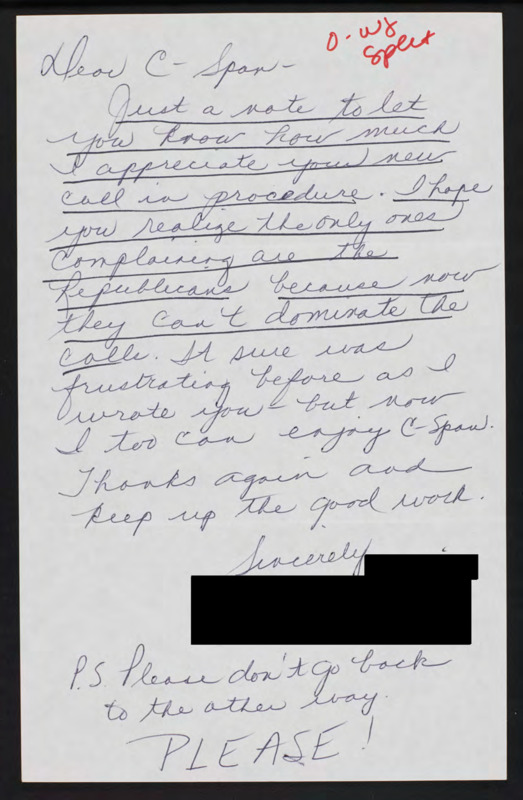 O-W$
Split
Dear C-Span-
Just a note to let
you know how much
I appreciate your new
call in procedure. I hope
you realize the only ones
complaining are the
Republicans because now
they can't dominate the
calls. It sure was
frustrating before as I
wrote you - but now
I too can enjoy C-Span.
Thanks again and
keep up the good work.
Sincerely
P.S. Please don't go back
to the other way.
PLEASE!